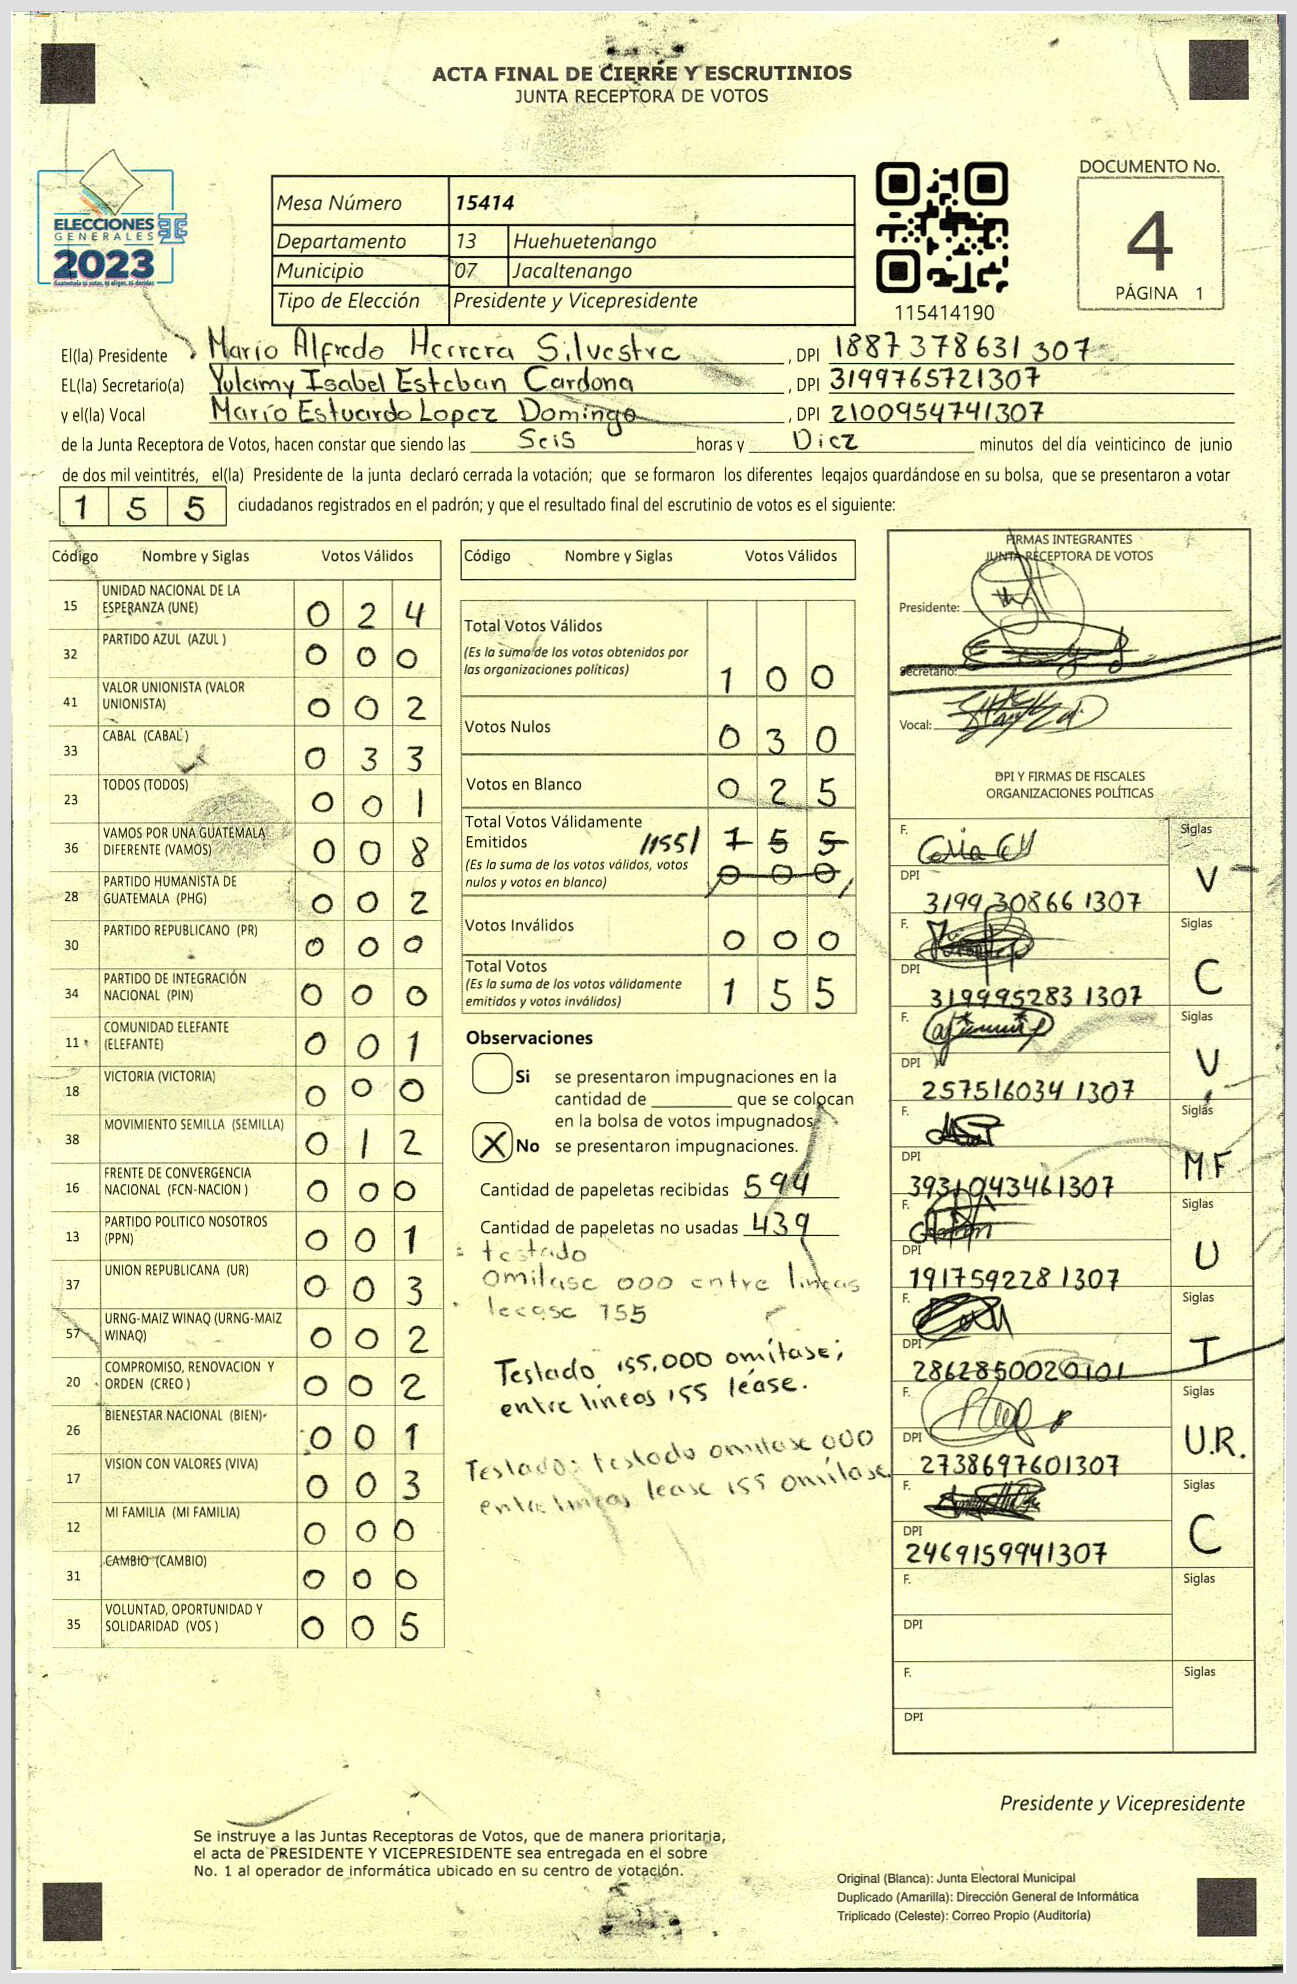 ACTA FINAL DE CIERRE Y ESCRUTINIOS
JUNTA RECEPTORA DE VOTOS
ELECCIONES
GENERALES
2023
Mesa Número 15414
Departamento 13 Huehuetenango
Municipio 07 Jacaltenango
Tipo de Elección Presidente y Vicepresidente
115414190
DOCUMENTO No.
4
PÁGINA 1
El(la) Presidente Mario Alfredo Herrera Silvestre, DPI 1887378631307
EL(la) Secretario(a) Yulcimy Isabel Esteban Cardona, DPI 3199765721307
y el(la) Vocal Mario Estuardo Lopez Domingo, DPI 2100954741307
de la Junta Receptora de Votos, hacen constar que siendo las Seis horas y Diez minutos del día veinticinco de junio
de dos mil veintitrés, el(la) Presidente de la junta declaró cerrada la votación; que se formaron los diferentes legajos guardándose en su bolsa, que se presentaron a votar
155 ciudadanos registrados en el padrón; y que el resultado final del escrutinio de votos es el siguiente:
Código Nombre y Siglas Votos Válidos
15 UNIDAD NACIONAL DE LA
ESPERANZA (UNE) 0 2 4
32 PARTIDO AZUL (AZUL ) 0 0 0
41 VALOR UNIONISTA (VALOR
UNIONISTA) 0 0 2
33 CABAL (CABAL ) 0 3 3
23 TODOS (TODOS) 0 0 1
36 VAMOS POR UNA GUATEMALA
DIFERENTE (VAMOS) 0 0 8
28 PARTIDO HUMANISTA DE
GUATEMALA (PHG) 0 0 2
30 PARTIDO REPUBLICANO (PR) 0 0 0
34 PARTIDO DE INTEGRACIÓN
NACIONAL (PIN) 0 0 0
11 COMUNIDAD ELEFANTE
(ELEFANTE) 0 0 1
18 VICTORIA (VICTORIA) 0 0 0
38 MOVIMIENTO SEMILLA (SEMILLA) 0 1 2
16 FRENTE DE CONVERGENCIA
NACIONAL (FCN-NACION ) 0 0 0
13 PARTIDO POLITICO NOSOTROS
(PPN) 0 0 1
37 UNION REPUBLICANA (UR) 0 0 3
57 URNG-MAIZ WINAQ (URNG-MAIZ
WINAQ) 0 0 2
20 COMPROMISO, RENOVACION Y
ORDEN (CREO ) 0 0 2
26 BIENESTAR NACIONAL (BIEN) 0 0 1
17 VISION CON VALORES (VIVA) 0 0 3
12 MI FAMILIA (MI FAMILIA) 0 0 0
31 CAMBIO (CAMBIO) 0 0 0
35 VOLUNTAD, OPORTUNIDAD Y
SOLIDARIDAD (VOS ) 0 0 5
Código Nombre y Siglas Votos Válidos
Total Votos Válidos
(Es la suma de los votos obtenidos por
las organizaciones políticas) 1 0 0
Votos Nulos 0 3 0
Votos en Blanco 0 2 5
Total Votos Válidamente
Emitidos /155/ 1 5 5
(Es la suma de los votos válidos, votos
nulos y votos en blanco) 0 0 0
Votos Inválidos 0 0 0
Total Votos
(Es la suma de los votos válidamente
emitidos y votos inválidos) 1 5 5
Observaciones
Si se presentaron impugnaciones en la
cantidad de ________ que se colocan
en la bolsa de votos impugnados
X No se presentaron impugnaciones.
Cantidad de papeletas recibidas 594
Cantidad de papeletas no usadas 439
testado
omitase 000 entre lineas
lecase 155
Testado 155,000 omítase;
entre líneas 155 léase.
Testado: testado omitase 000
entre lineas lease 155 omitase.
FIRMAS INTEGRANTES
JUNTA RECEPTORA DE VOTOS
Presidente:
Secretario:
Vocal:
DPI Y FIRMAS DE FISCALES
ORGANIZACIONES POLÍTICAS
F. Siglas
DPI V
3199308661307
F. Siglas
DPI C
3199952831307
F. Siglas
DPI V
2575160341307
F. Siglas
DPI MF
3931043461307
F. Siglas
DPI U
1917592281307
F. Siglas
DPI I
2862850020101
F. Siglas
DPI U.R.
2738697601307
F. Siglas
DPI C
2469159941307
F. Siglas
DPI
F. Siglas
DPI
Presidente y Vicepresidente
Se instruye a las Juntas Receptoras de Votos, que de manera prioritaria,
el acta de PRESIDENTE Y VICEPRESIDENTE sea entregada en el sobre
No. 1 al operador de informática ubicado en su centro de votación.
Original (Blanca): Junta Electoral Municipal
Duplicado (Amarilla): Dirección General de Informática
Triplicado (Celeste): Correo Propio (Auditoría)